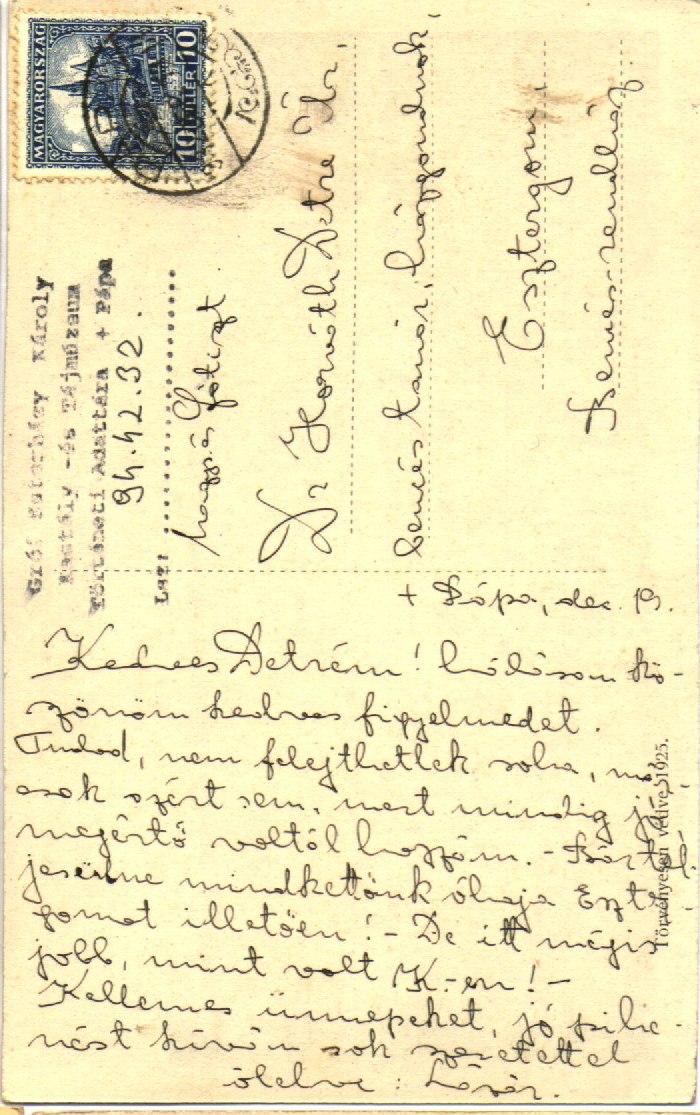 MAGYARORSZÁG
10 FILLÉR 10
Gróf Esterházy Károly
Kastély -és Tájmúzeum
Történeti Adattára + Pápa
94.42.32.
Lsz:
Dr Horváth Detre Úr,
bencés tanár,
Esztergom,
Bencés-rendház.
+ Pápa, dec. 19.
Kedves Detrém! Hálásan kö-
szönöm kedves figyelmedet.
Tudod, nem felejthetlek soha, már
csak azért sem, mert mindig jó,
megértő voltál hozzám. -
mindkettőnk óhaja Eszter-
gomot illetően! - De itt mégis
jobb, mint volt K.-en! -
Kellemes ünnepeket, jó pihe-
nést kíván sok szeretettel
ölelve:
Törvényesen védve. 1925.